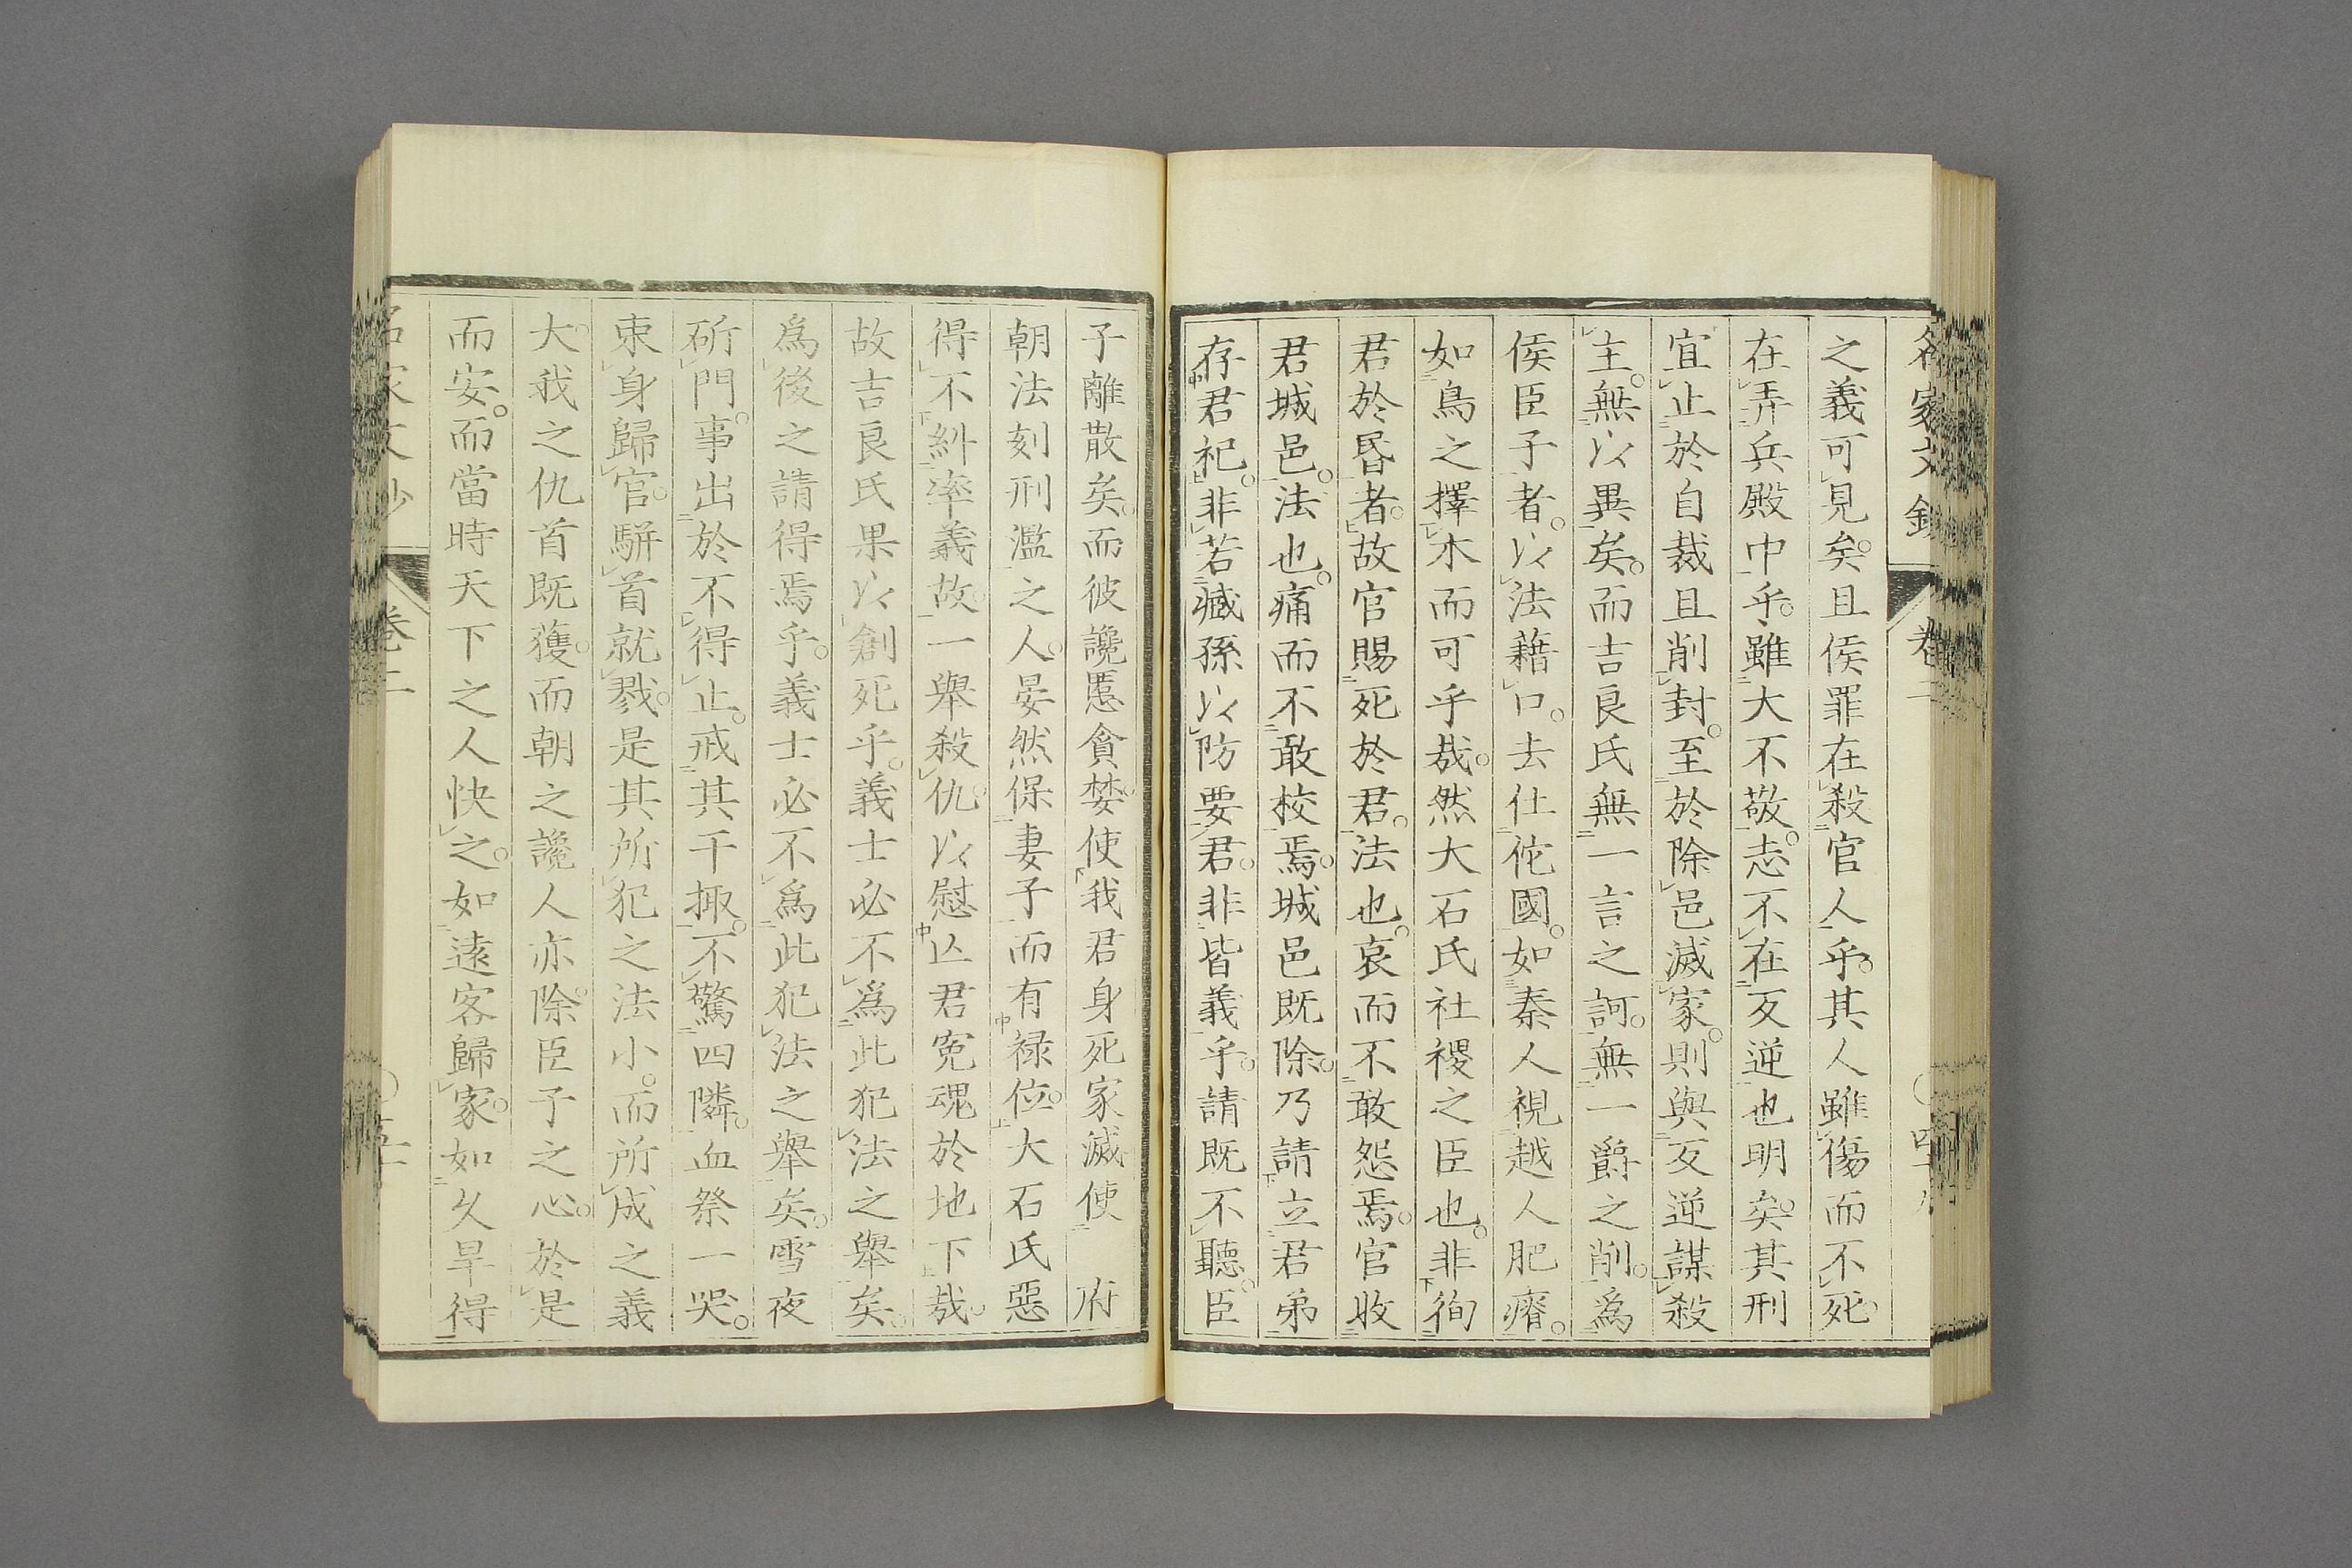 名家文鈔
卷二
之義可見矣。且侯罪在殺官人乎。其人雖傷而不死
在弄兵殿中乎。雖大不敬。志不在反逆也明矣。其刑
宜止於自裁且削封。至於除邑滅家。則與反逆謀殺
主。無以異矣。而吉良氏無一言之訶。無一爵之削。爲
侯臣子者。以法藉口。去仕佗國。如秦人視越人肥瘠。
如鳥之擇木而可乎哉。然大石氏社稷之臣也。非徇
君於昏者。故官賜死於君。法也。哀而不敢怨焉。官收
君城邑。法也。痛而不敢校焉。城邑既除。乃請立君弟
存君祀。非若臧孫以防要君。非皆義乎。請既不聽。臣
子離散矣。而彼讒慝貪婪。使我君身死家滅使 府
朝法刻刑濫之人。晏然保妻子而有祿位。大石氏惡
得不糾率義故。一舉殺仇。以慰亾君冤魂於地下哉。
故吉良氏果以創死乎。義士必不爲此犯法之舉矣。
爲後之請得焉乎。義士必不爲此犯法之舉矣。雪夜
斫門。事出於不得止。戒其干掫。不驚四隣。血祭一哭。
束身歸官。駢首就戮。是其所犯之法小。而所成之義
大。我之仇首既獲。而朝之讒人亦除。臣子之心。於是
而安。而當時天下之人快之。如遠客歸家。如久旱得
卷二